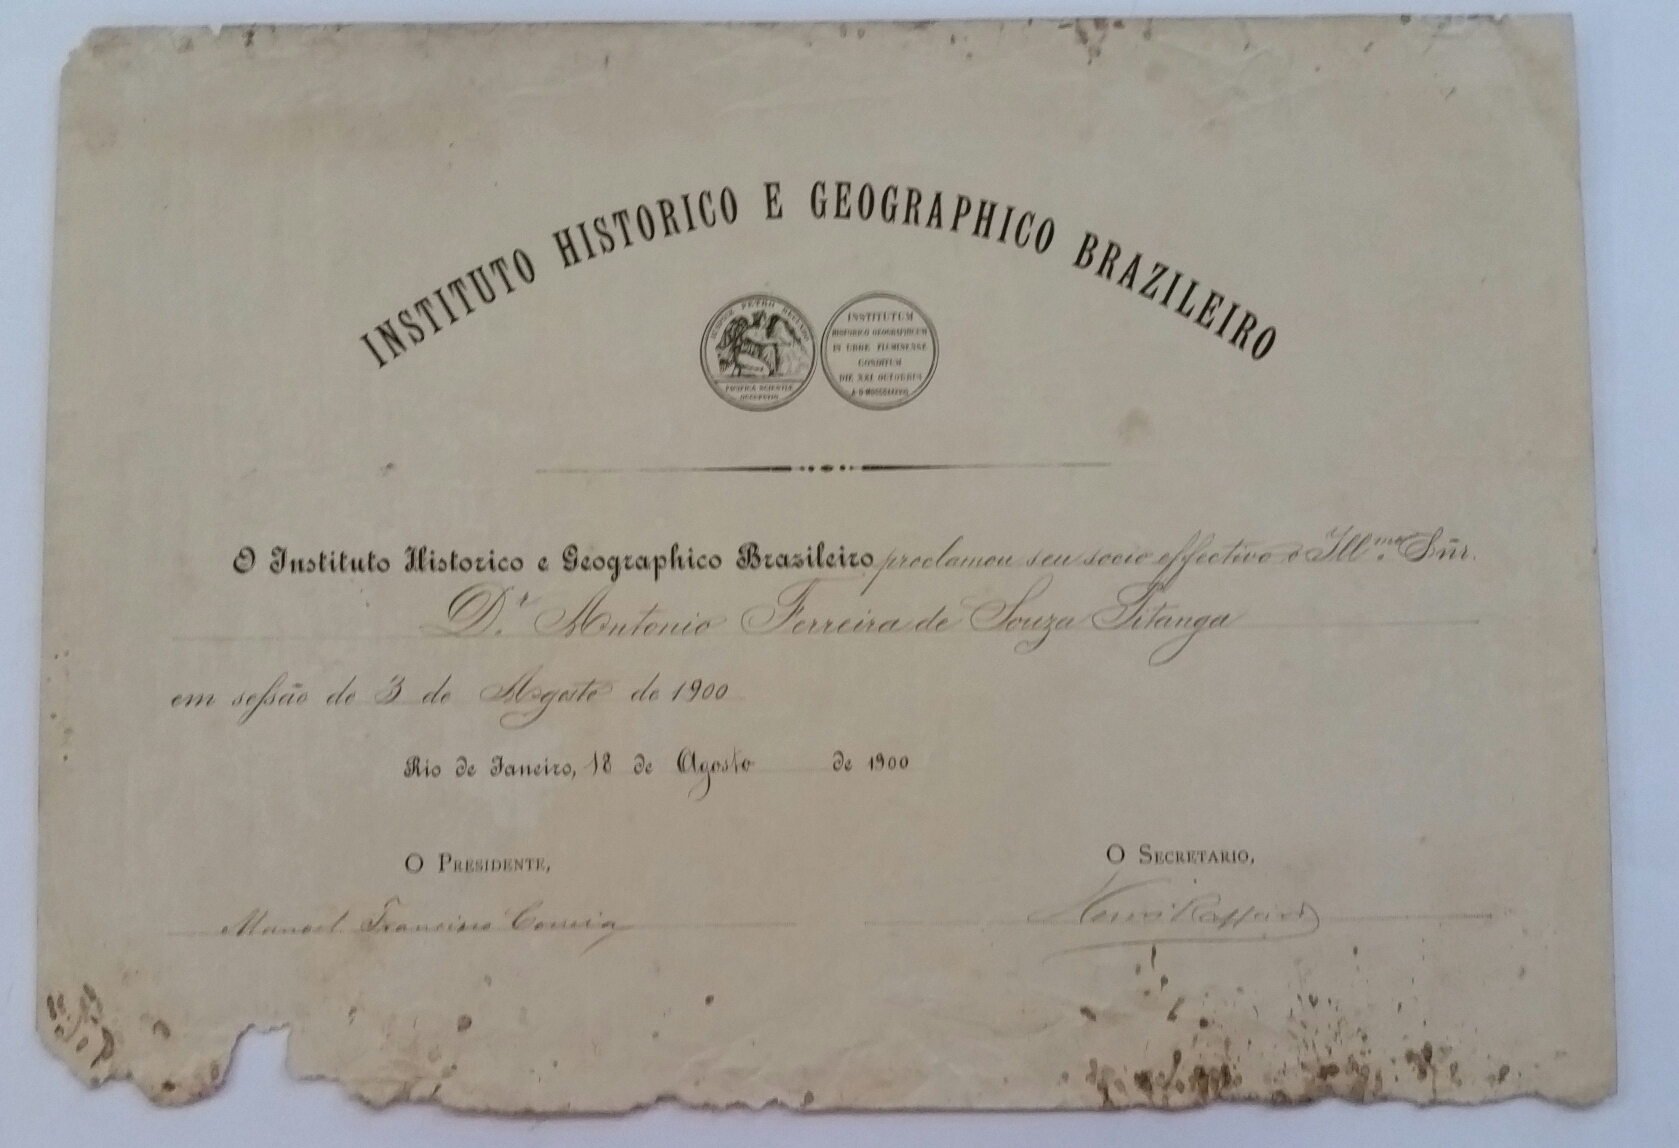 INSTITUTO HISTORICO E GEOGRAPHICO BRAZILEIRO
AUSPICE PETRO SECUNDO
PACIFICA SCIENTIÆ
OCCUPATIO
INSTITUTUM
HISTORICO GEOGRAPHICUM
IN URBE FLUMINENSE
CONDITUM
DIE XXI OCTOBRIS
A D MDCCCXXXVIII
O Instituto Historico e Geographico Brazileiro proclamou seu socio effectivo o Illmo. Sñr.
Dr. Antonio Ferreira de Souza Pitanga
em sessão de 3 de Agosto de 1900
Rio de Janeiro, 18 de Agosto de 1900
O PRESIDENTE,
Manoel Francisco Correia
O SECRETARIO,
Henri Raffard